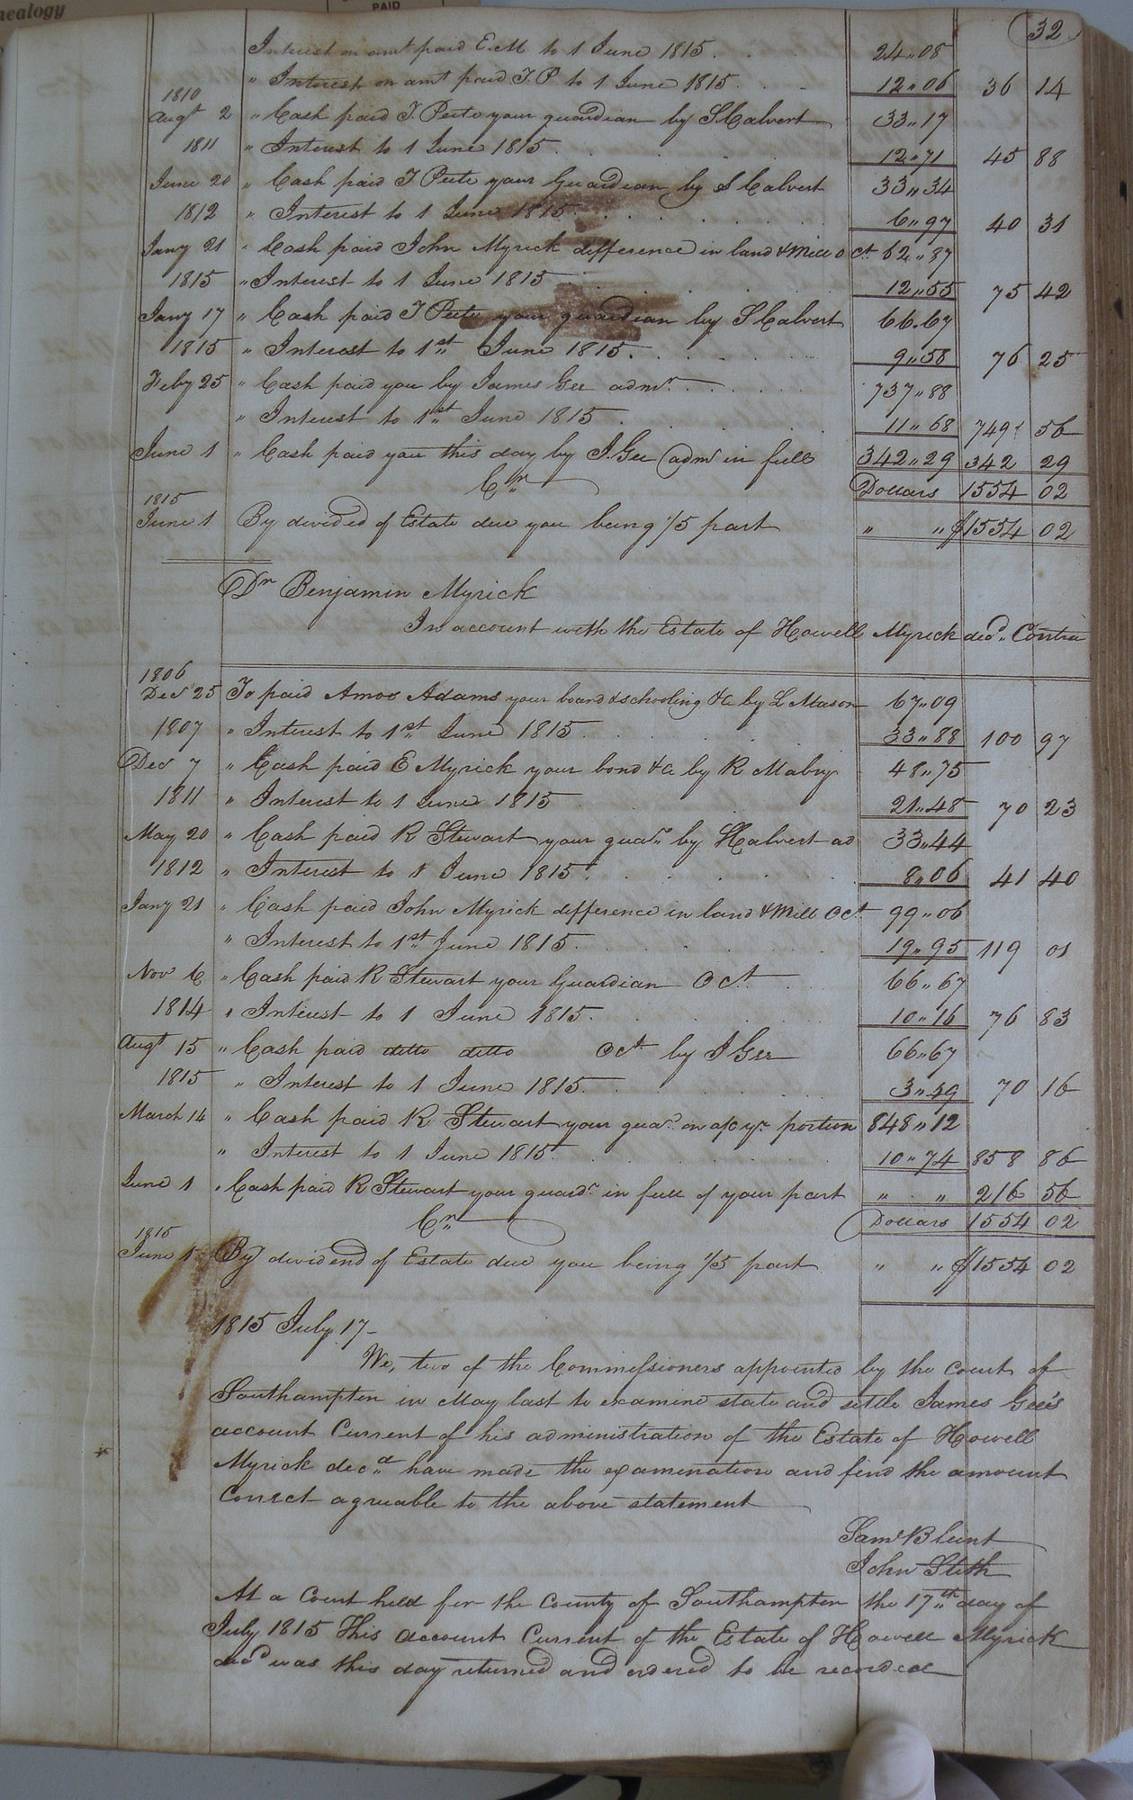 nealogy
PAID
32
Interest on amt paid E. M to 1 June 1815 . 24"08
" Interest on amt paid T. P to 1 June 1815 . . 12"06 36 14
1810
Augt 2 " Cash paid T. Peete your guardian by S Calvert 33"17
1811 " Interest to 1 June 1815 . . . 12"71 45 88
June 20 " Cash paid T Peete your Guardian by S Calvert 33"34
1812 " Interest to 1 June 1815 . . . 6"97 40 31
Jany 21 " Cash paid John Myrick difference in land & Mill o Ct 62"87
1815 " Interest to 1 June 1815 . . . 12"55 75 42
Jany 17 " Cash paid T Peete your guardian by S Calvert 66.67
1815 " Interest to 1st June 1815 . . . 9"58 76 25
Feby 25 " Cash paid you by James Gee admr . 737"88
" Interest to 1st June 1815 . . . 11"68 749 56
June 1 " Cash paid you this day by J. Gee admr in full 342"29 342 29
Cr Dollars 1554 02
1815
June 1 By divided of Estate due you being 1/5 part " " $1554 02
Dr Benjamin Myrick
In account with the Estate of Howell Myrick decd. Contra
1806
Decr 25 To paid Amos Adams your board & schooling &c by L Mason 67"09
1807 " Interest to 1st June 1815 . . . 33"88 100 97
Decr 7 " Cash paid E Myrick your bond &c by R Mabry 48"75
1811 " Interest to 1 June 1815 . . . 21"48 70 23
May 20 " Cash paid R Stewart your guadn by S Calvert ad 33"44
1812 " Interest to 1 June 1815 . . . 8"06 41 40
Jany 21 " Cash paid John Myrick difference in land & Mill o Ct 99"06
" Interest to 1st June 1815 . . . 19"95 119 01
Nov 6 " Cash paid R Stewart your Guardian o Ct 66"67
1814 " Interest to 1 June 1815 . . . 10"16 76 83
Augt 15 " Cash paid ditto ditto o Ct by J Gee 66"67
1815 " Interest to 1 June 1815 . . . 3"49 70 16
March 14 " Cash paid R Stewart your guad. on a/c yr portion 848"12
" Interest to 1 June 1815 . . . 10"74 858 86
June 1 " Cash paid R Stewart your guardn in full of your part " " 216 56
Cr Dollars 1554 02
1815
June 1 By dividend of Estate due you being 1/5 part " " $1554 02
1815 July 17 -
We, two of the Commissioners appointed by the Court of
Southampton in May last to examine state and settle James Gee's
account Current of his administration of the Estate of Howell
Myrick decd have made the examination and find the amount
Correct agreable to the above statement
Saml Blunt
John Stith
At a Court held for the County of Southampton the 17th day of
July 1815 This account Current of the Estate of Howell Myrick
decd was this day returned and ordered to be recorded